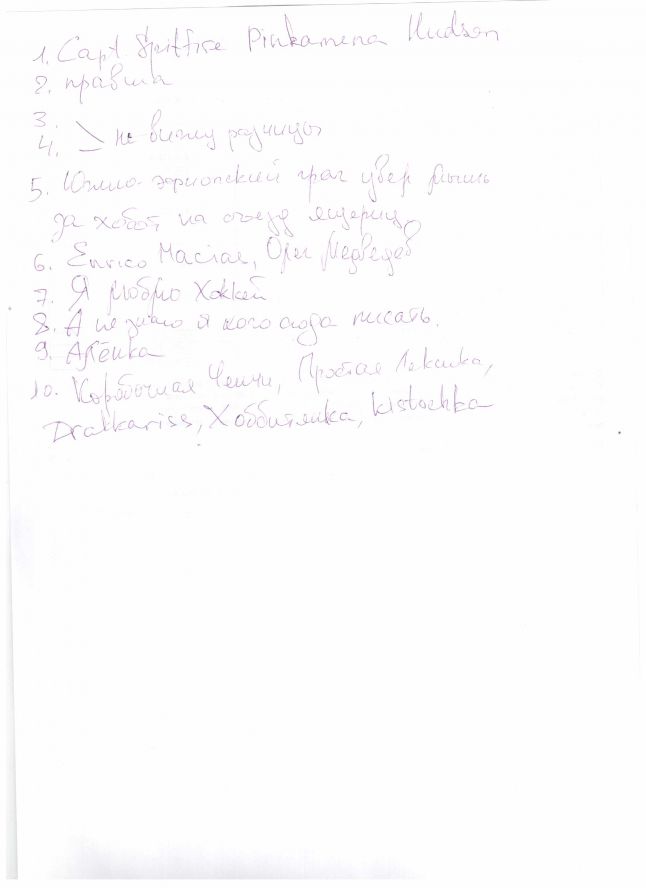 1. Capt. Spitfire Pinkamena Hudson
2. правша
3.
4. не вижу разницы
5. Южно-эфиопский грач увёл мышь
за хобот на съезд ящериц
6. Enrico Macias, Олег Медведев
7. Я люблю Хоккей
8. А не знаю я кого сюда писать.
9. Алёнка
10. Коробочная Ченчи, Простая Лексика,
Drakkariss, Хоббитянка, kistochka